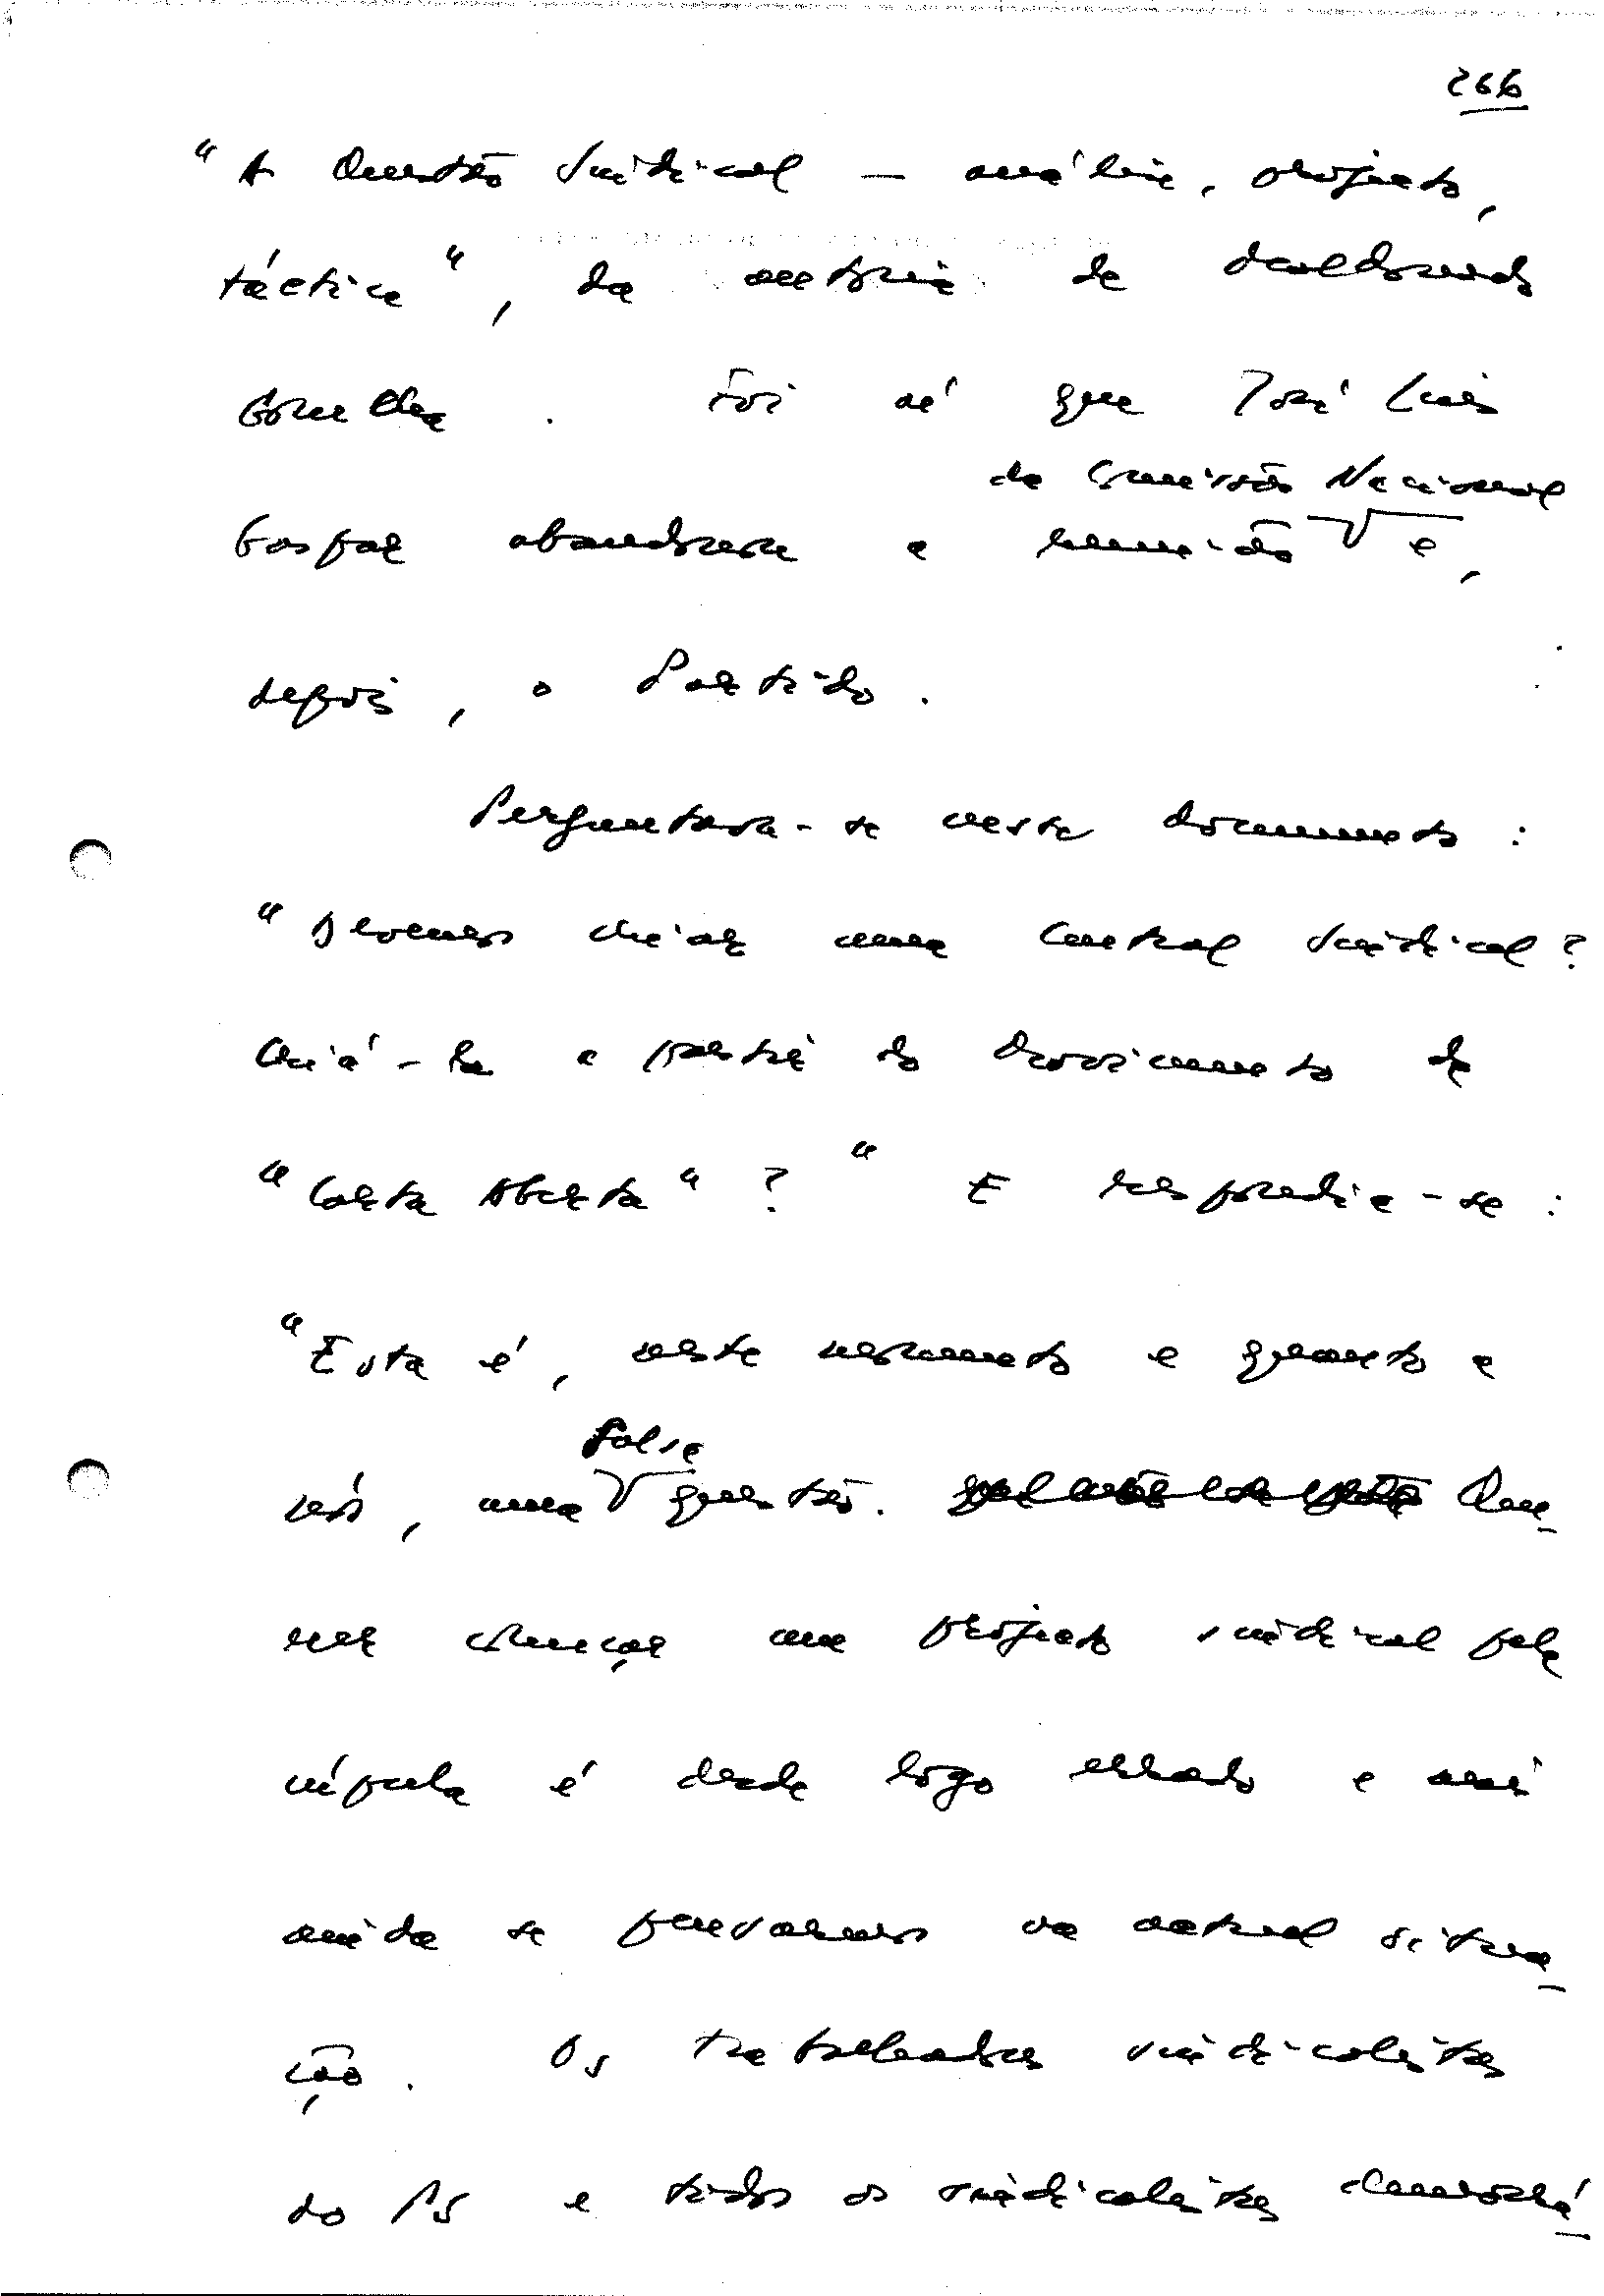 266
"A Questão Sindical — análise, projecto,
táctica", da autoria de Maldonado
Gonelha. Foi aí que José Luís
da Comissão Nacional
Gaspar abandonara a reunião e,
depois, o Partido.
Perguntava-se neste documento:
"Devemos criar uma Central Sindical?
Criá-la a partir do Movimento da
"Carta Aberta"?" E respondia-se:
"Esta é, neste momento e quanto a
falsa
nós, uma questão. Que-
rer começar um projecto sindical pela
cúpula é desde logo errado e mais
ainda se pensarmos na actual situa-
ção. Os trabalhadores sindicalistas
do PS e todos os sindicalistas democrá-